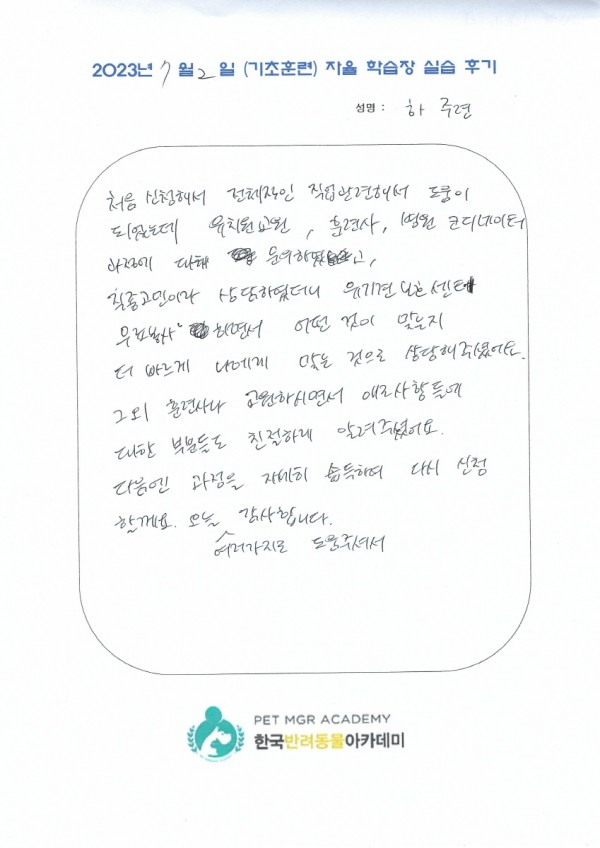 2023년 7월 2일 (기초훈련) 자율 학습장 실습 후기
성명 : 하 주련
처음 신청해서 전체적인 직업관련해서 도움이
되었는데 유치원교원, 훈련사, 병원 코디네이터
과정에 대해 문의하였고,
직종고민이라 상담하였더니 유기견보호센터
무료봉사 하면서 어떤 것이 맞는지
더 빠르게 나에게 맞는 것으로 상담해주셨어요.
그외 훈련사나 교원하시면서 애로사항들에
대한 부분들도 친절하게 알려주셨어요.
다음엔 과정을 자세히 습득하여 다시 신청
할께요. 오늘 감사합니다.
여러가지로 도움주셔서
PET MGR ACADEMY
한국반려동물아카데미